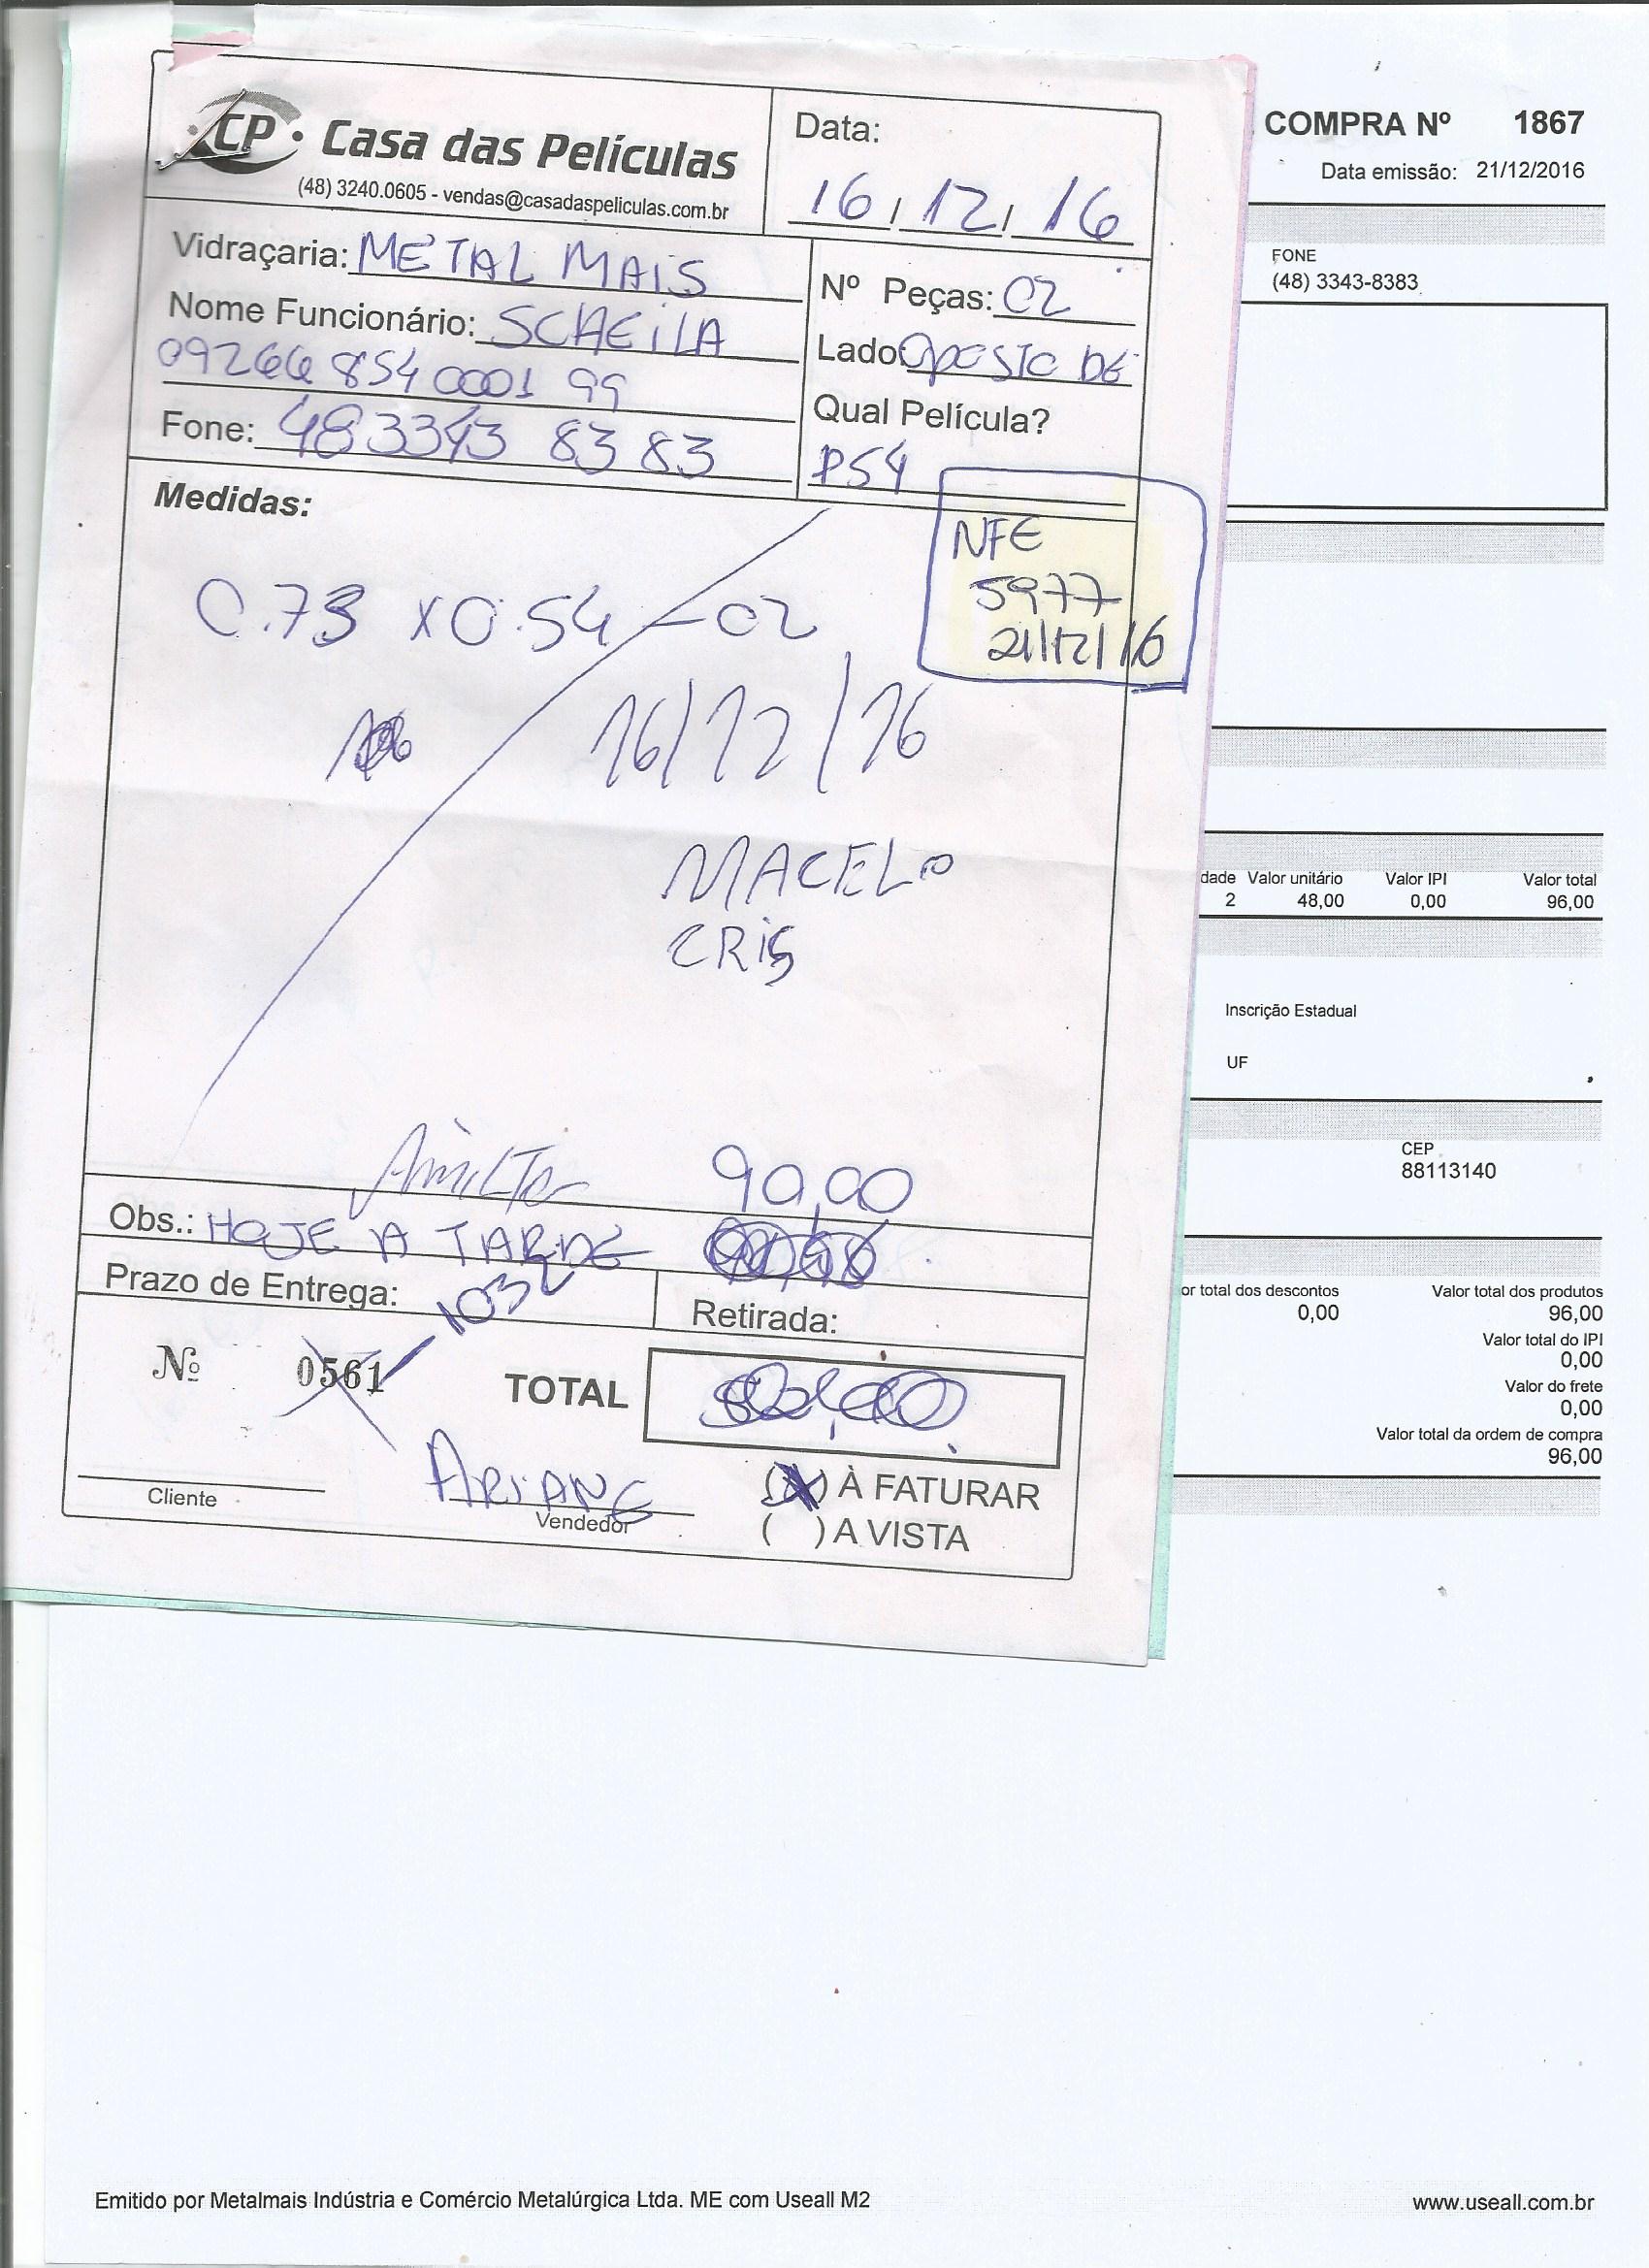 CP
Casa das Películas
(48) 3240.0605 - vendas@casadaspeliculas.com.br
Data:
16, 12, 16
Vidraçaria: METAL MAIS
Nome Funcionário: SCHEILA
09266 854 0001 99
Fone: 483343 83 83
Nº Peças: 02
Lado OPOSTO DE
Qual Película?
PS4
Medidas:
NFE
5977
21/12/16
0.73 X 0.54 - 02
16/12/16
MACELO
CRIS
90,00
Obs.: HOJE A TARDE
Prazo de Entrega:
1032
Retirada:
Nº 0561
TOTAL
Cliente
ARIANE
Vendedor
(X) À FATURAR
( ) A VISTA
COMPRA Nº 1867
Data emissão: 21/12/2016
FONE
(48) 3343-8383
dade Valor unitário Valor IPI Valor total
2 48,00 0,00 96,00
Inscrição Estadual
UF
CEP
88113140
or total dos descontos Valor total dos produtos
0,00 96,00
Valor total do IPI
0,00
Valor do frete
0,00
Valor total da ordem de compra
96,00
Emitido por Metalmais Indústria e Comércio Metalúrgica Ltda. ME com Useall M2
www.useall.com.br